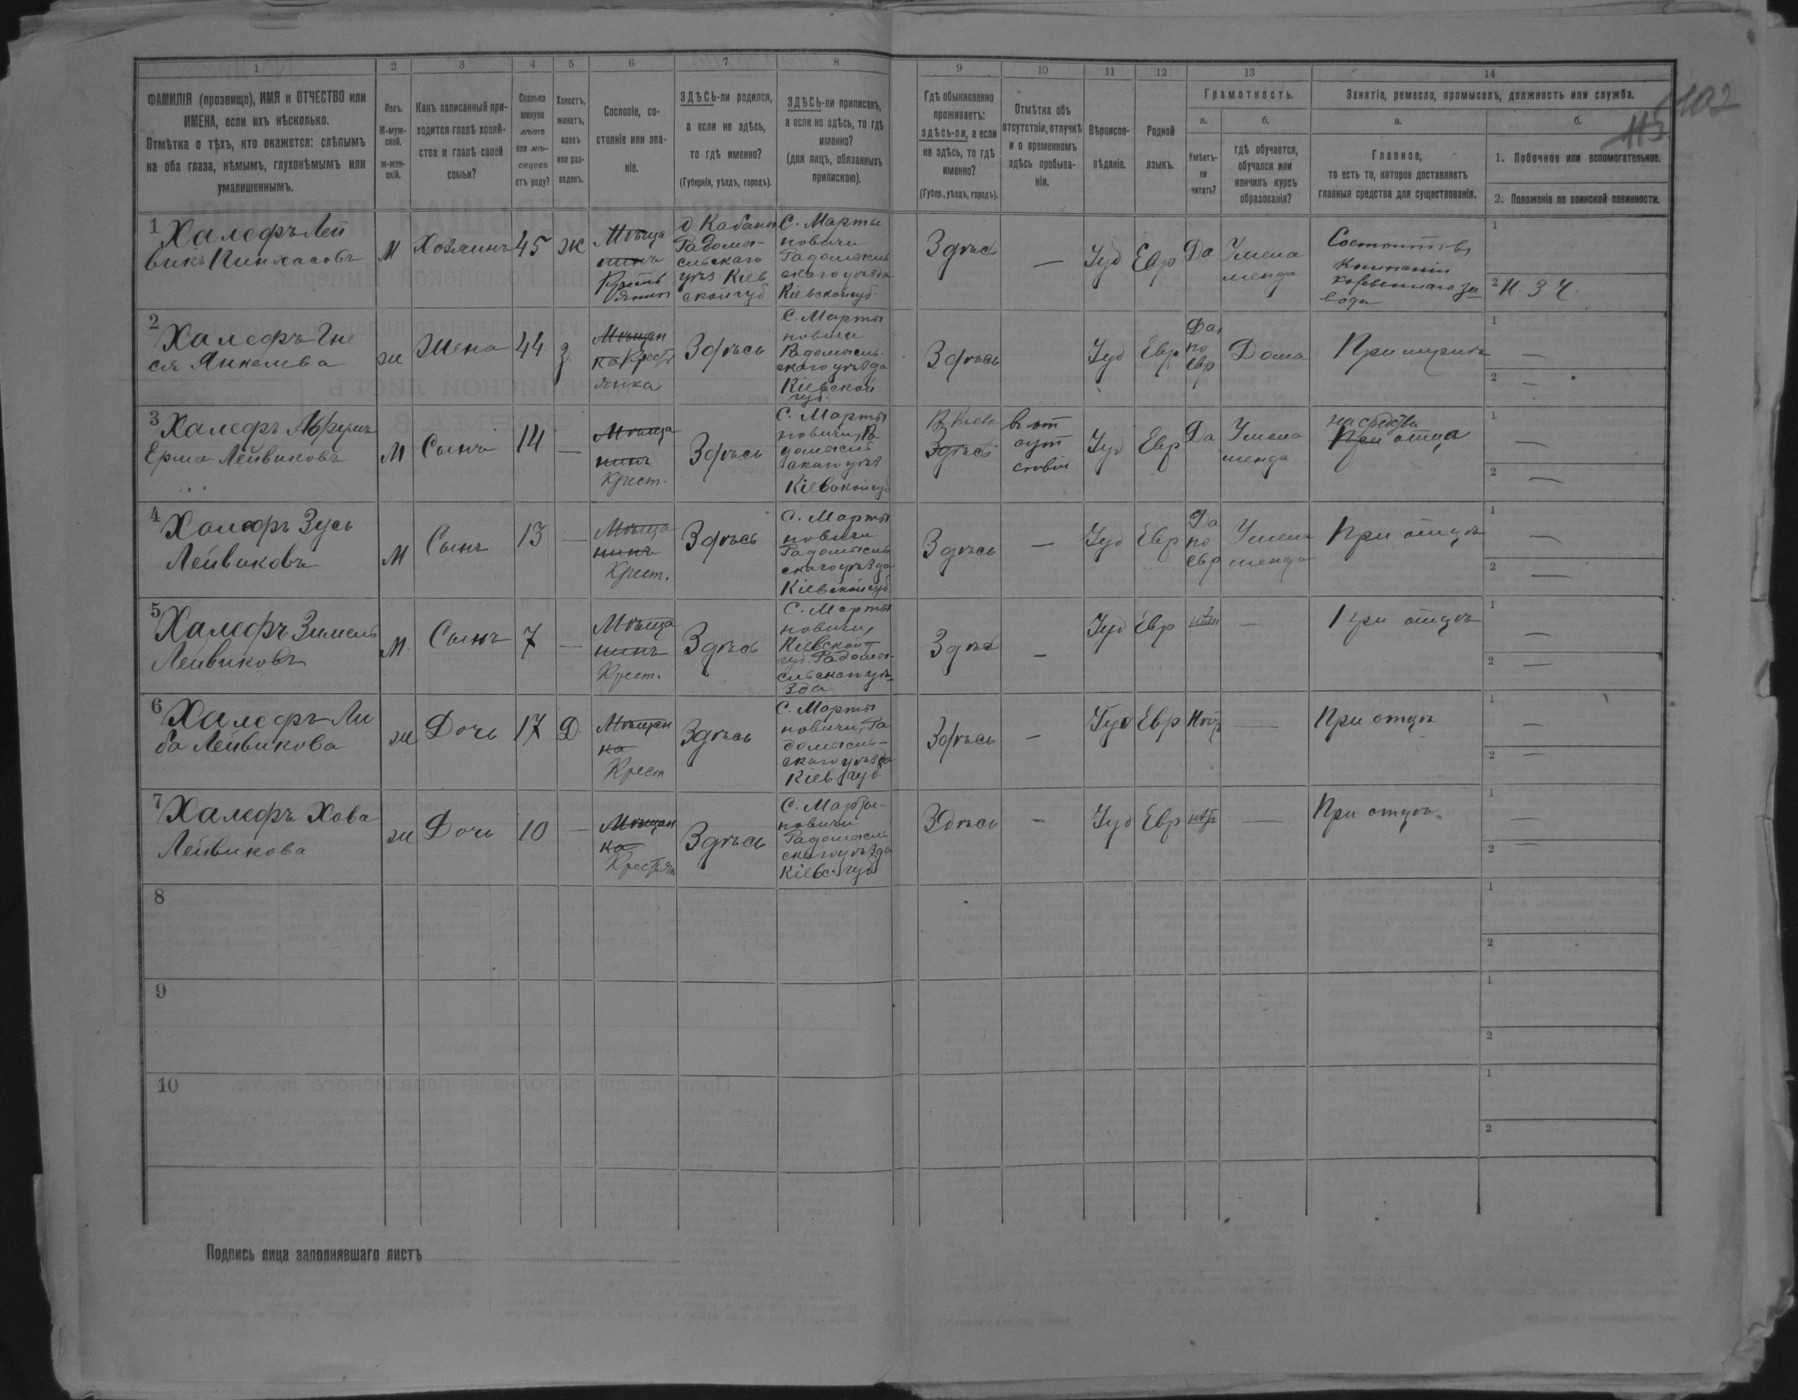 102
115
1 2 3 4 5 6 7 8 9 10 11 12 13 14
ФАМИЛІЯ (прозвище), ИМЯ и ОТЧЕСТВО или
ИМЕНА, если ихъ нѣсколько.
Отмѣтка о тѣхъ, кто окажется: слѣпымъ
на оба глаза, нѣмымъ, глухонѣмымъ или
умалишеннымъ.
Полъ.
М-муж-
ской.
ж-жен-
скій.
Какъ записанный при-
ходится главѣ хозяй-
ства и главѣ своей
семьи?
Сколько
минуло
лѣтъ
или мѣ-
сяцевъ
отъ роду?
Холостъ,
женатъ,
вдовъ
или раз-
веденъ.
Сословіе, со-
стояніе или зва-
ніе.
ЗДѢСЬ-ли родился,
а если не здѣсь,
то гдѣ именно?
(Губернія, уѣздъ, городъ).
ЗДѢСЬ-ли приписанъ,
а если не здѣсь, то гдѣ
именно?
(для лицъ, обязанныхъ
припискою).
Гдѣ обыкновенно
проживаетъ:
здѣсь-ли, а если
не здѣсь, то гдѣ
именно?
(Губер., уѣздъ, городъ).
Отмѣтка объ
отсутствіи, отлучкѣ
и о временномъ
здѣсь пребыва-
ніи.
Вѣроиспо-
вѣданіе.
Родной
языкъ.
Грамотность.
а.
Умѣетъ-
ли
читать?
б.
гдѣ обучается,
обучался или
кончилъ курсъ
образованія?
Занятіе, ремесло, промыселъ, должность или служба.
а.
Главное,
то есть то, которое доставляетъ
главныя средства для существованія.
б.
1. Побочное или вспомогательное.
2. Положеніе по воинской повинности.
1
Халефъ Лей
викъ Пинхасовъ
М
Хозяинъ
45
Ж
Мѣща
нинъ
д Кабаны
Радомы-
сльскаго
уѣз Кіев
ской губ
С. Марты
новичи
Радомысль
скаго уѣзда
Кіевской губ
Здѣсь
—
Іуд
Евр
Да
У мела
меда
Состоитъ въ
Компаніи
завода
1
2
2
Халефъ Гне
ся Янкелева
ж
Жена
44
З.
Мѣщан
ка Крест
янка
Здѣсь
С. Марты
новичи
Радомысль-
скаго уѣзда
Кіевской
губ.
Здѣсь
Іуд
Евр
Да,
по
Евр
Дома
При мужѣ
1 —
2 —
3
Халефъ
Лейвиковъ
М
Сынъ
14
—
Мѣща
нинъ
Крест.
Здѣсь
С. Марты
новичи, Ра
домысль
скаго уѣз
Кіевской губ
В Кіевѣ
Здѣсь
В от
сут
ствіи
Іуд
Евр
Да
на средства
При отца
1 —
2 —
4
Халефъ Зусь
Лейвиковъ
М
Сынъ
13
—
Мѣща
нинъ
Крест.
Здѣсь
С. Марты
новичи
Радомысль
скаго уѣзда
Кіевской губ
Здѣсь
—
Іуд
Евр
Да
по
Евр
При отцѣ
1 —
2 —
5
Халефъ Зимель
Лейвиковъ
М
Сынъ
7
—
Мѣща
нинъ
Крест.
Здѣсь
С. Марты
новичи,
Кіевской
губ. Радомы-
сльскаго уѣ-
зда
Здѣсь
—
Іуд
Евр
нѣт
—
При отцѣ
1 —
2 —
6
Халефъ Ли
ба Лейвикова
ж
Дочь
17
Д.
Мѣщан
ка
Крест
Здѣсь
С. Марты
новичи, Ра
домысль-
скаго уѣзда
Кіев губ.
Здѣсь
—
Іуд
Евр
Нѣтъ
—
При отцѣ
1 —
2 —
7
Халефъ Хова
Лейвикова
ж
Дочь
10
—
Мѣщан
ка
Крестьян
Здѣсь
С. Марты-
новичи
Радомысль
скаго уѣзда
Кіевс. губ
Здѣсь
—
Іуд
Евр
нѣт
—
При отцѣ.
1 —
2 —
8
1
2
9
1
2
10
1
2
Подпись лица заполнявшаго листъ